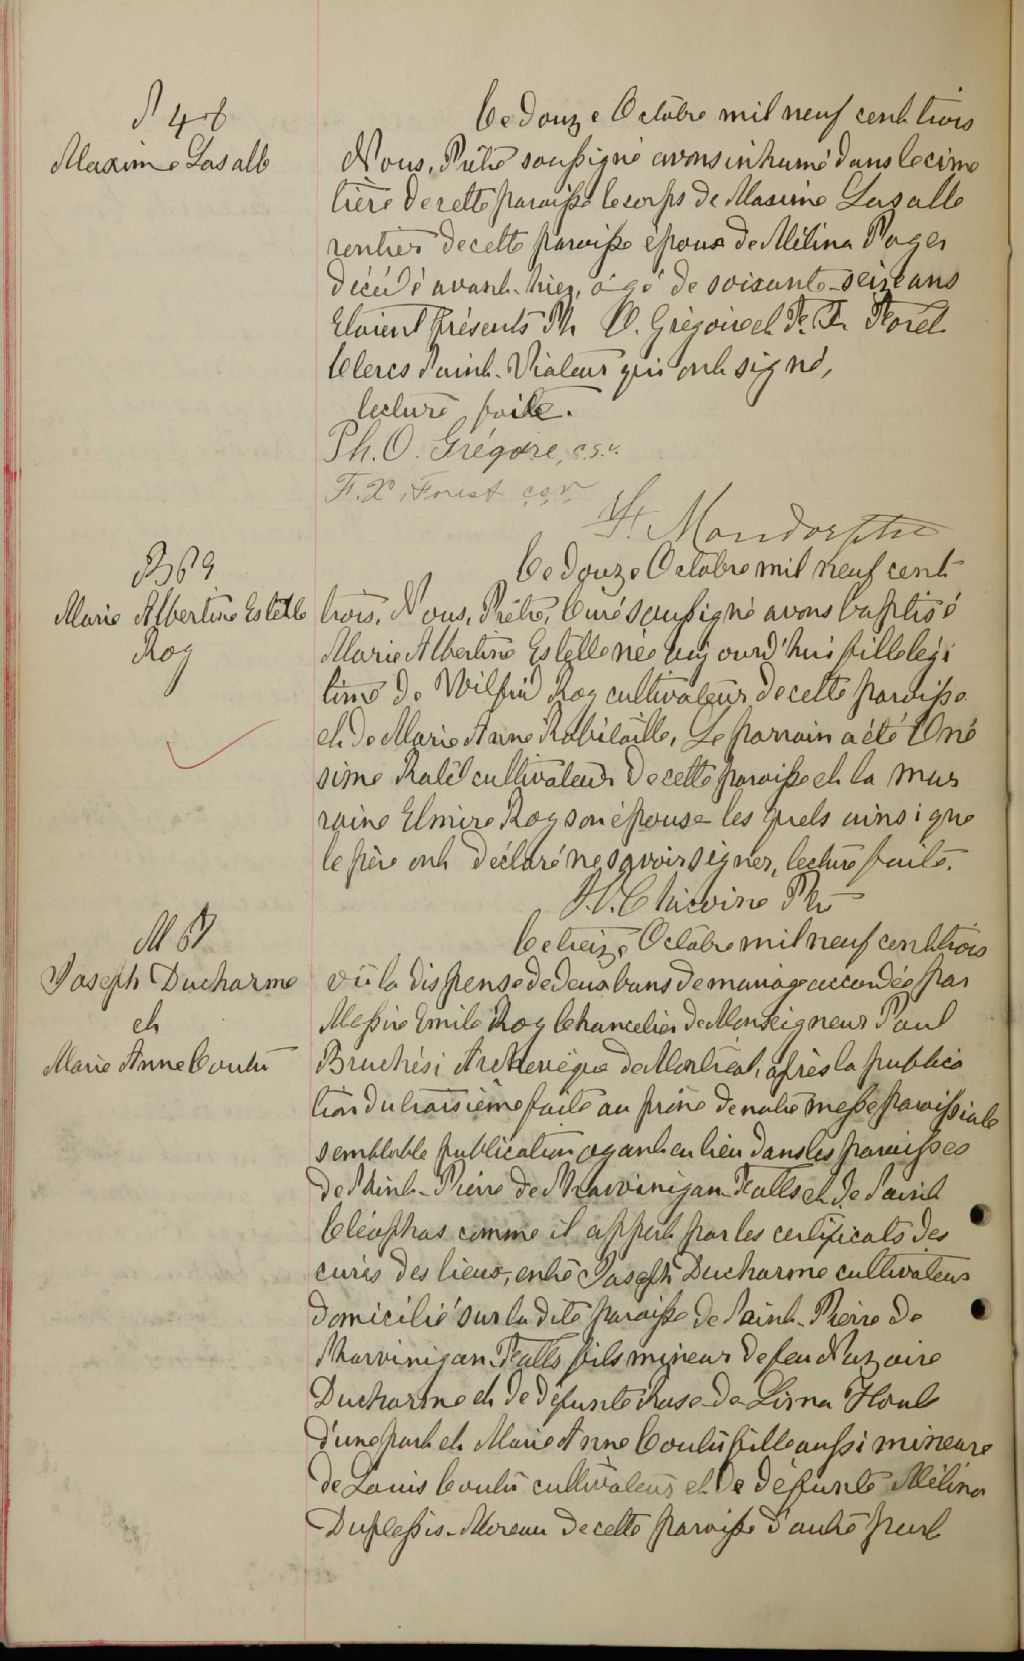 S 48
Maxime Lasalle
Le douze Octobre mil neuf cent trois
Nous, Prêtre soussigné avons inhumé dans le cime
tière de cette paroisse le corps de Maxime Lasalle
rentier de cette paroisse époux de Mélina Pager
décédé avant-hier, âgé de soixante-seize ans
Etaient présents Ph O. Grégoire et F. X. Forêt
Clercs Saint-Viateur qui ont signé,
lecture faite.
Ph. O. Grégoire, c.s.v.
F. X. Forest c.s.v.
B 69
Marie Albertine Estelle
Roy
Le douze Octobre mil neuf cent
trois, Nous, Prêtre, Curé soussigné avons baptisé
Marie Albertine Estelle née aujourd'hui fille légi
time de Wilfrid Roy cultivateur de cette paroisse
et de Marie Anne Robitaille, Le parrain a été Oné
sime Ratel cultivateur de cette paroisse et la mar
raine Elmire Roy son épouse les quels ainsi que
le père ont déclaré ne savoir signer, lecture faite.
Chicoine Ptre
M
Joseph Ducharme
et
Marie Anne Coutu
Le treize Octobre mil neuf cent trois
vû la dispense de deux bans de mariage accordée par
Messire Emile Roy Chancelier de Monseigneur Paul
Bruchési Archevêque de Montréal, après la publica
tion du troisième faite au prône de notre messe paroissiale
semblable publication ayant eu lieu dans les paroisses
de Saint-Pierre de Shawinigan-Falls et de Saint
Cléophas comme il appert par les certificats des
curés des lieux, entre Joseph Ducharme cultivateur
domicilié sur la dite paroisse de Saint-Pierre de
Shawinigan-Falls fils mineur de feu Nazaire
Ducharme et de défunte Rose-de-Lima Houle
d'une part et Marie Anne Coutu fille aussi mineure
de Louis Coutu cultivateur et de défunte Mélina
Duplessis-Moreau de cette paroisse d'autre part